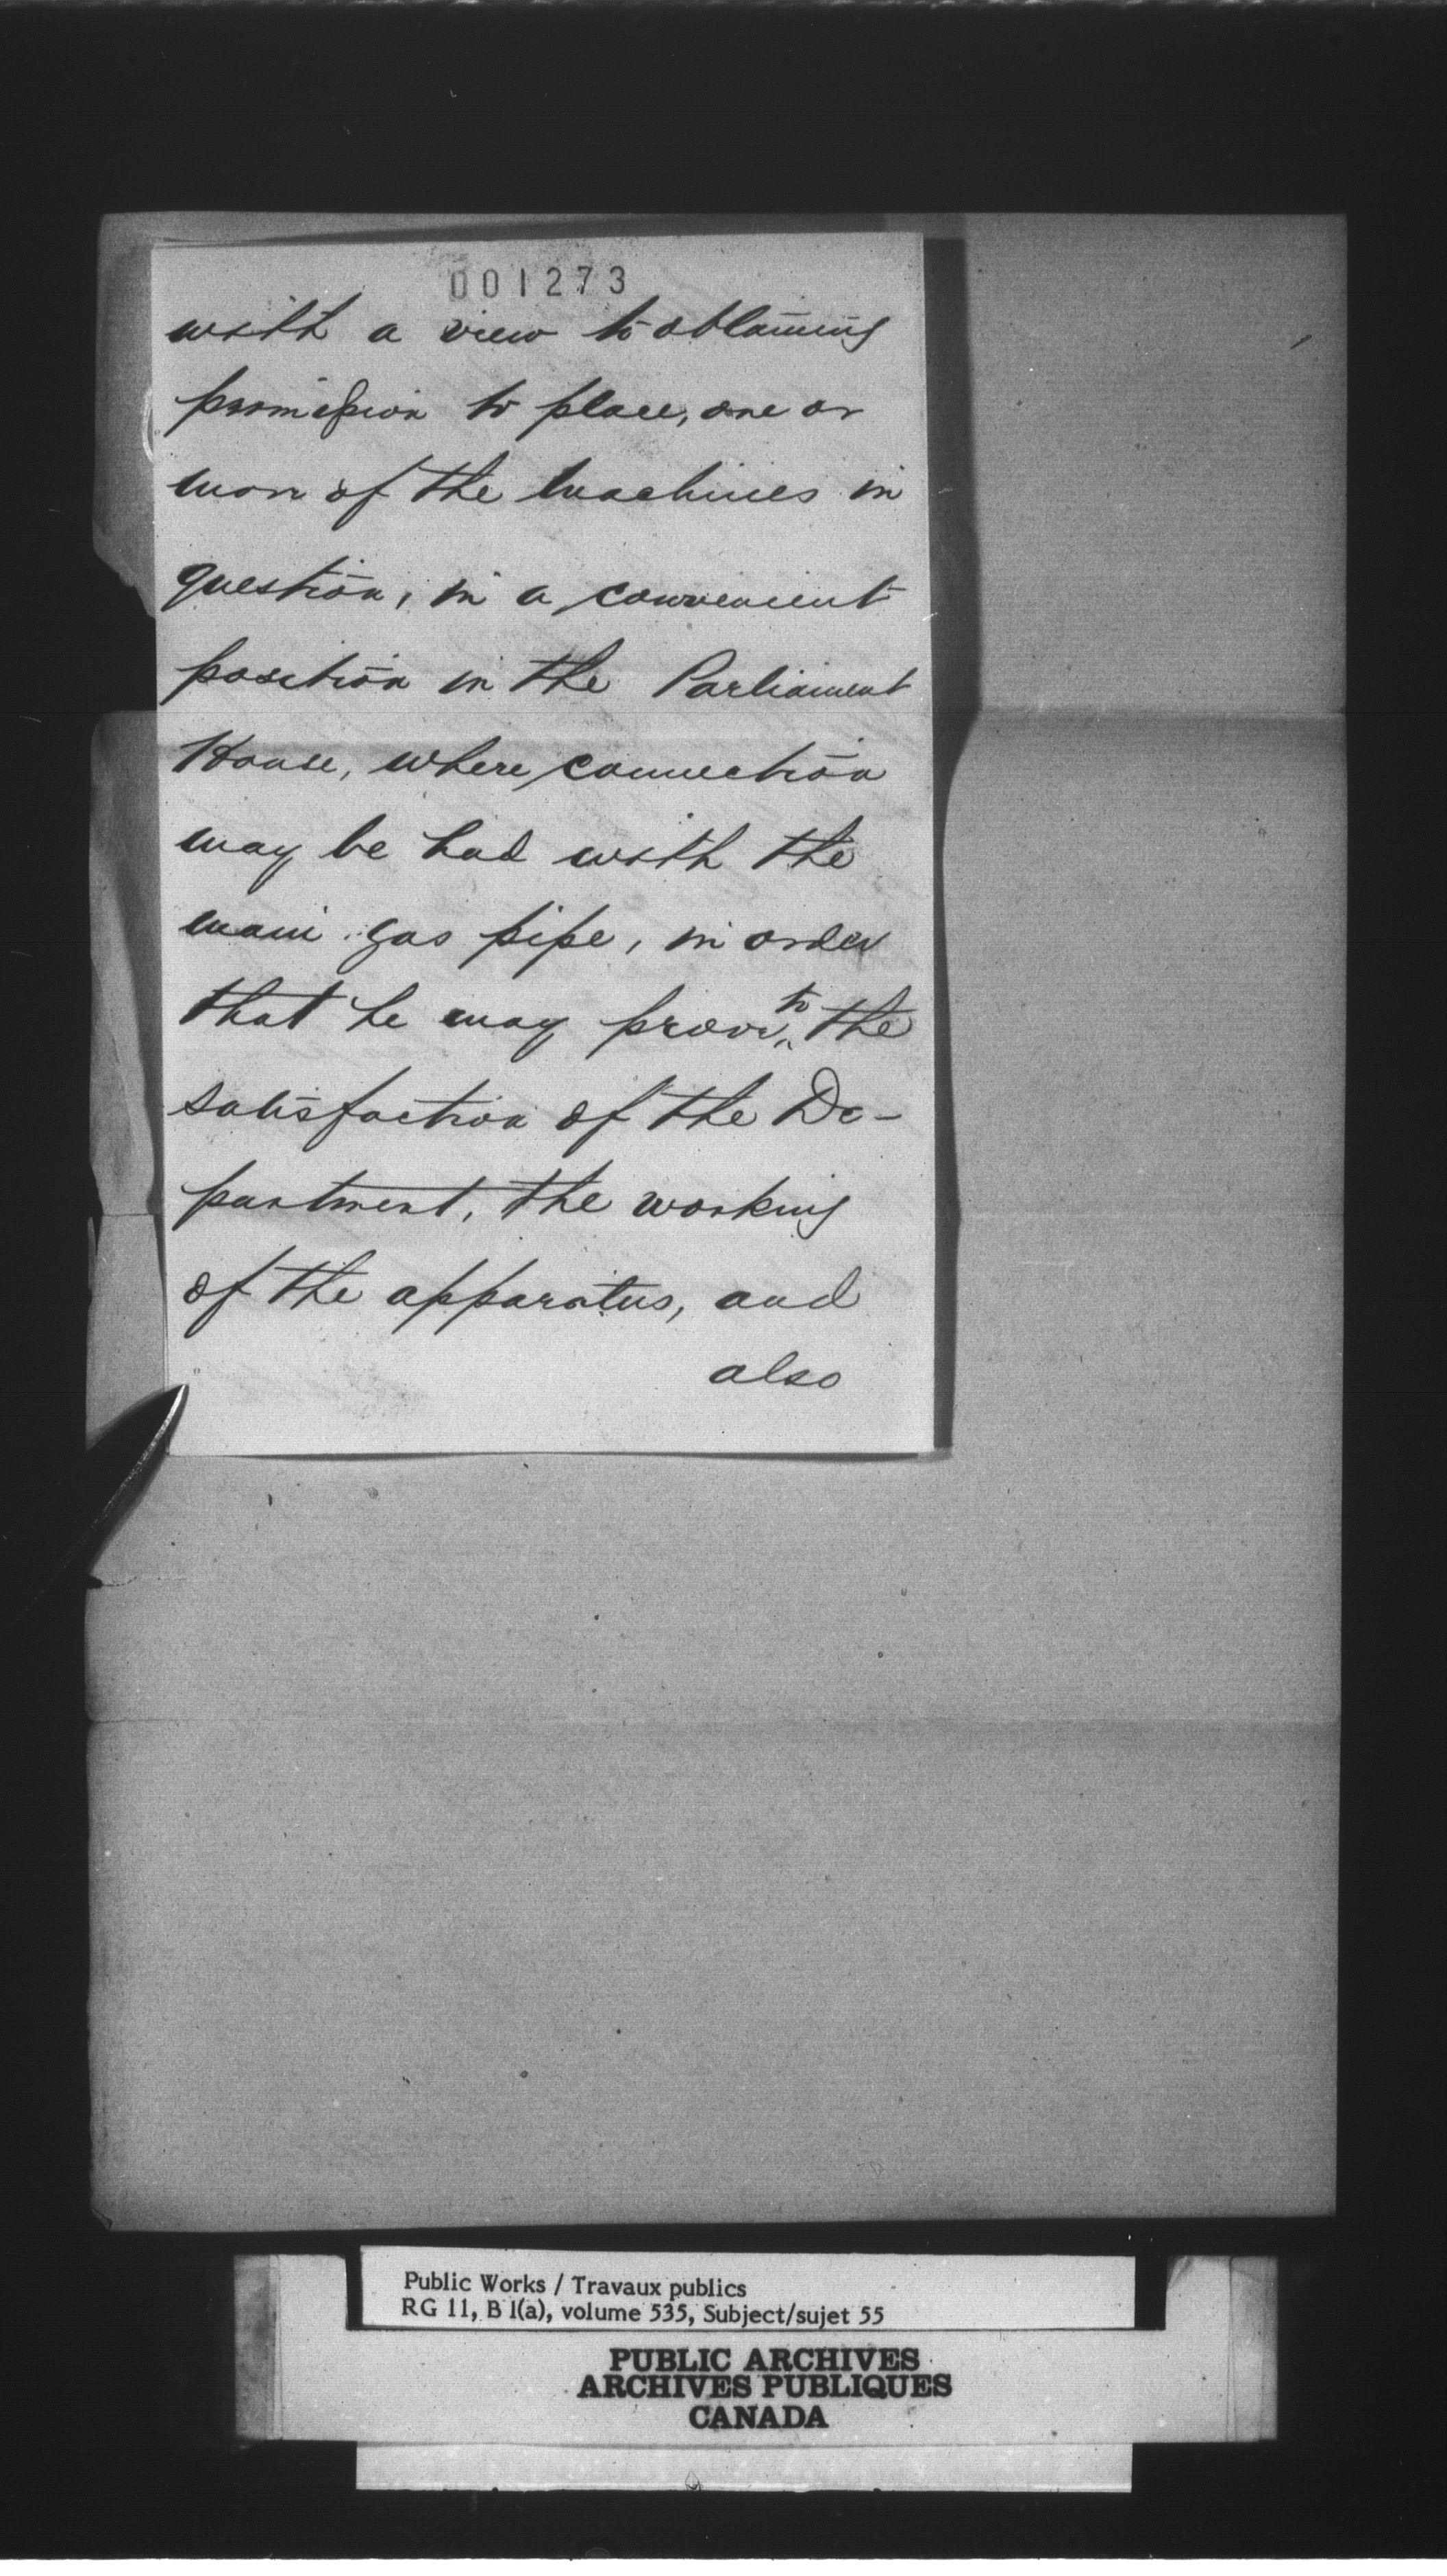 001273
with a view to obtaining
permission to place, one or
more of the machines in
question, in a convenient
position in the Parliament
House, where connection
may be had with the
main gas pipe, in order
that he may prove to the
satisfaction of the De-
partment, the working
of the apparatus, and
also
Public Works / Travaux publics
RG 11, B 1(a), volume 535, Subject/sujet 55
PUBLIC ARCHIVES
ARCHIVES PUBLIQUES
CANADA